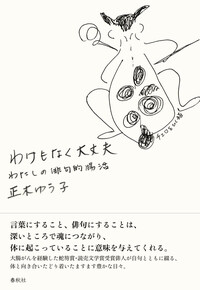 わけもなく大丈夫
わたしの俳句的腸活
正木ゆう子
言葉にすること、俳句にすることは、
深いところで魂につながり、
体に起こっていることに意味を与えてくれる。
大腸がんを経験した蛇笏賞・読売文学賞受賞俳人が自句とともに綴る、
体と向き合いたどり着いたますます豊かな日々。
春秋社